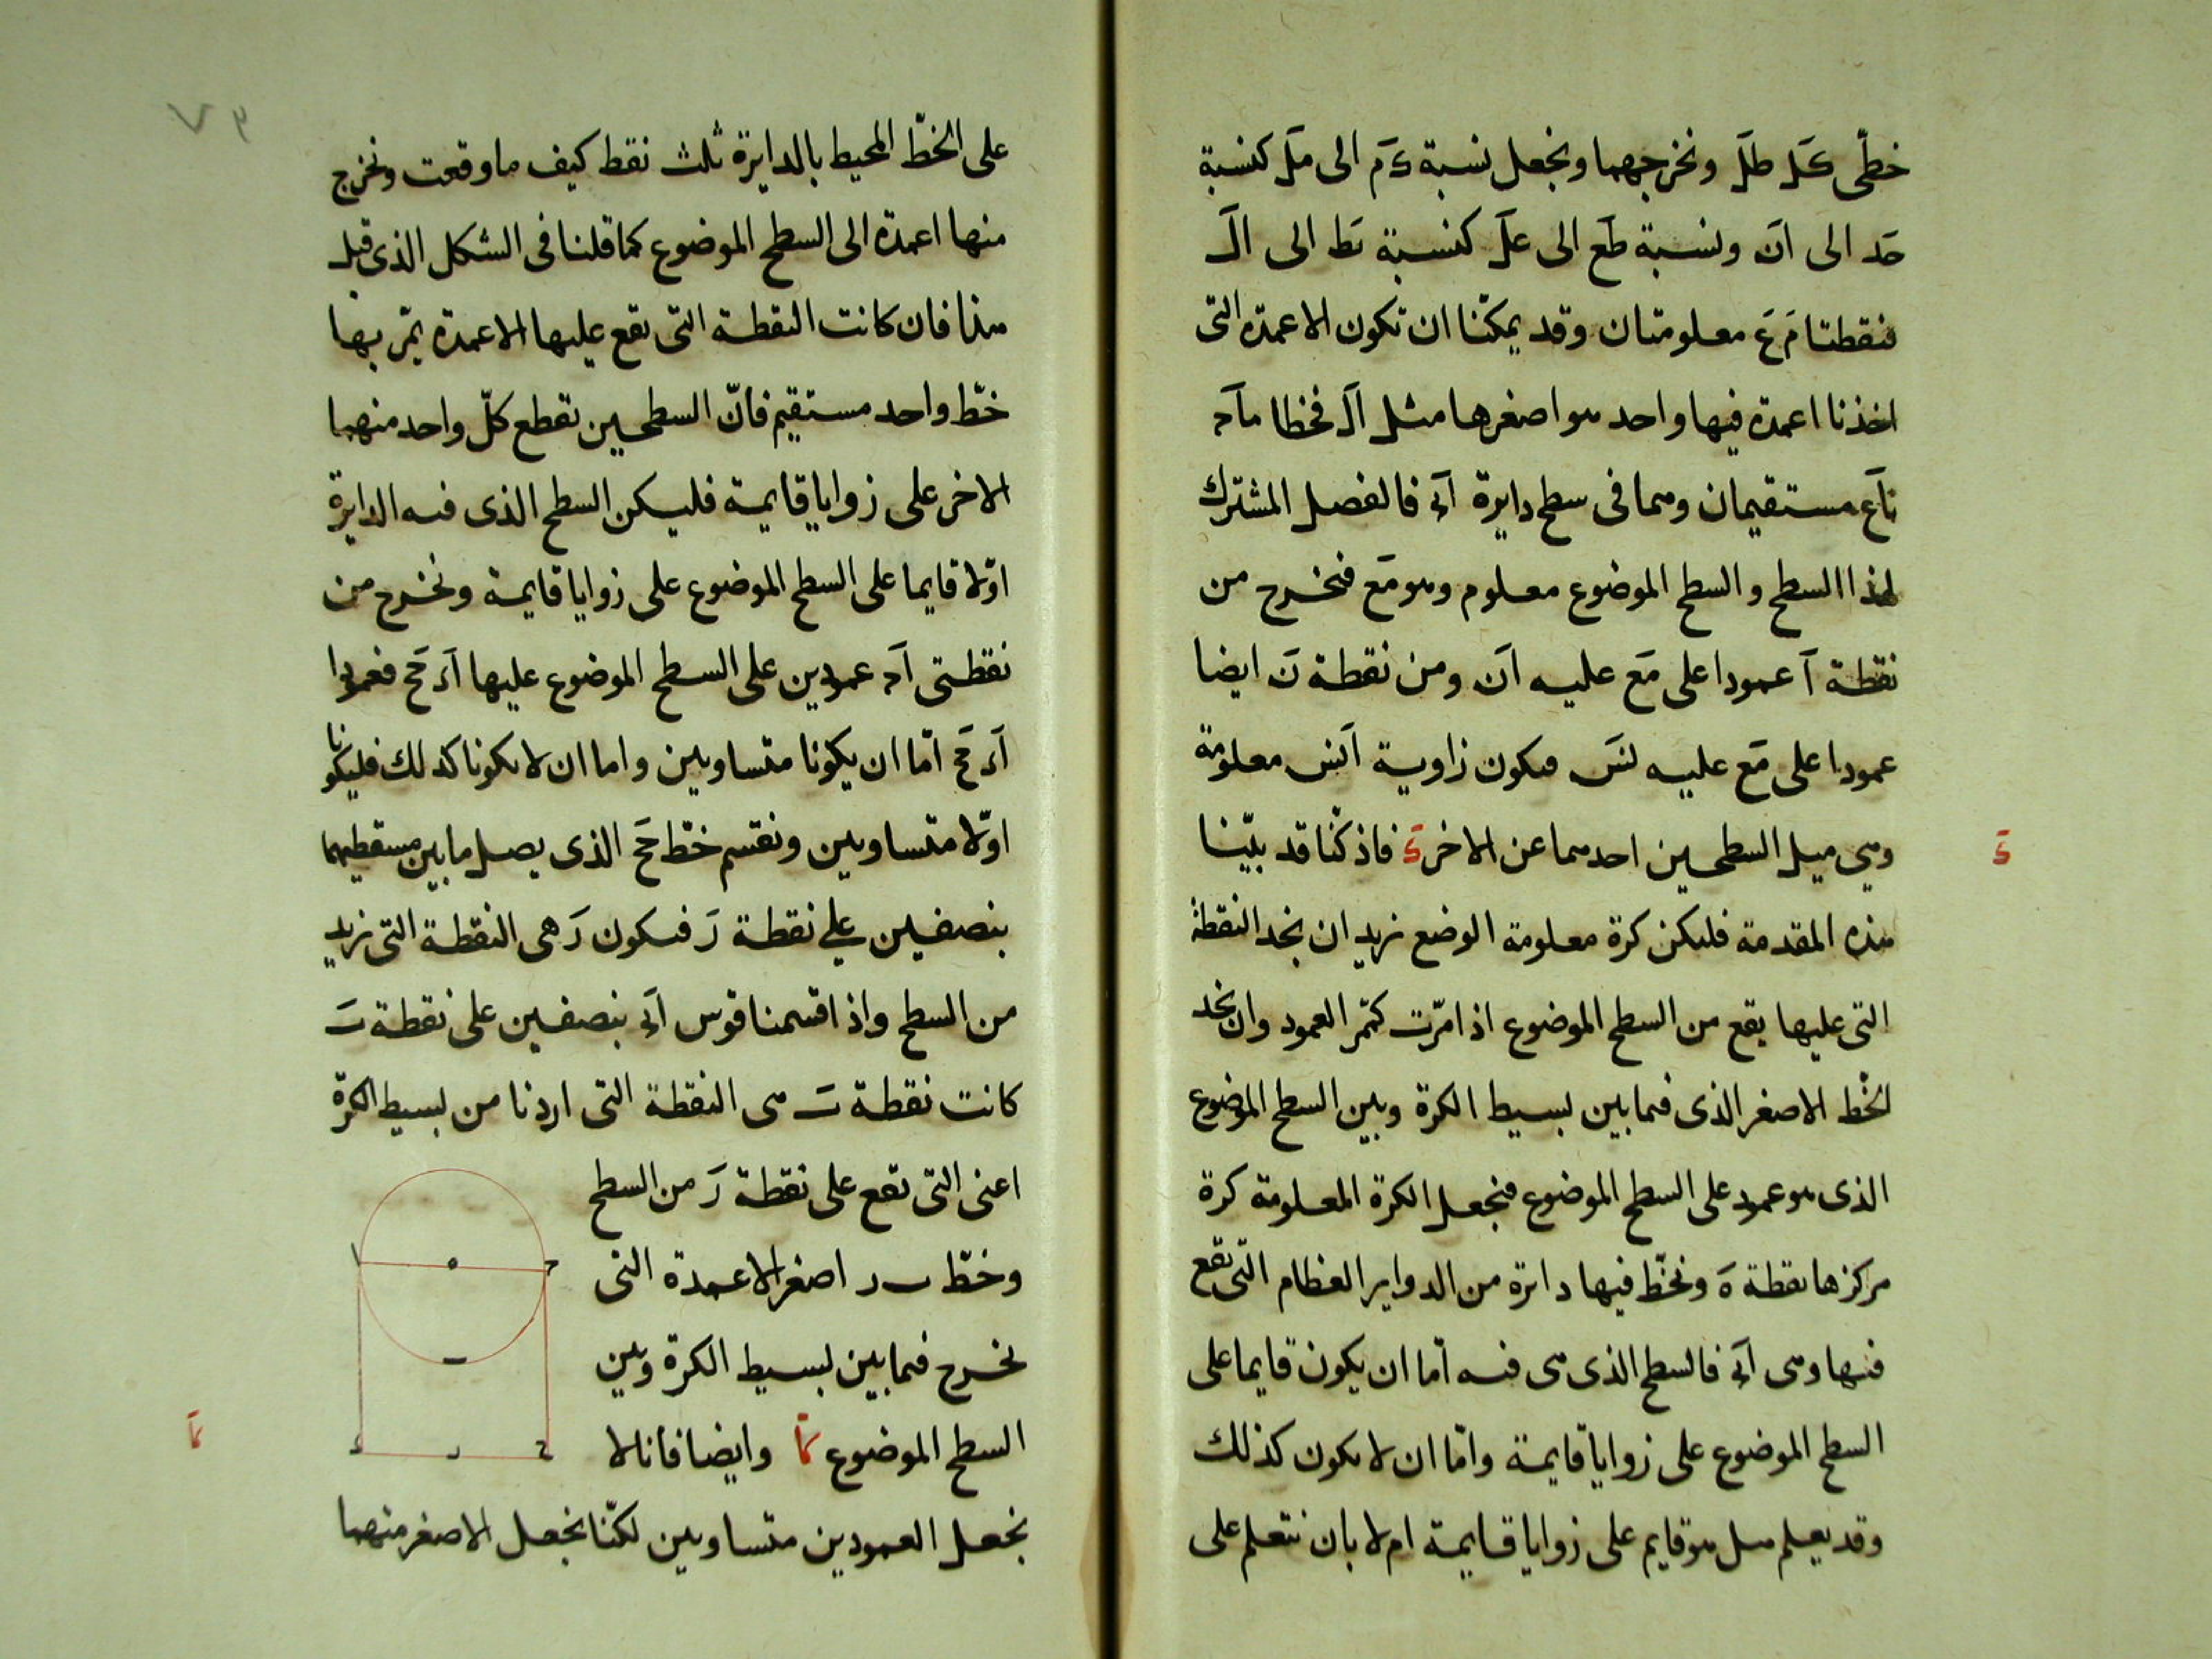 خطّى كَل طلَ ونخرجهما ونجعل نسبة كَم الى مَل كنسبة
حَد الى انَ ونسبة طَع الى علَ كنسبة نَط الى الَ
فنقطتا مَ عَ معلومتان وقد يمكننا ان تكون الاعمدة التى
اخذنا اعمدة فيها واحد هو اصغرها مثل الَ فخطا
نَاَع مستقيمان وهما فى سطح دايرة فالفصل المشترك
لهذا السطح والسطح الموضوع معلوم وهو مَع فنخرج من
نقطة آ عمودا على مَع عليه انَ ومن نقطة نَ ايضا
عمودا على مَع عليه نسَ فيكون زاوية انس معلومة
وهى ميل السطحين احدهما عن الاخر كَ فاذ كنّا قد بيّنا
هذه المقدمة فليكن كرة معلومة الوضع نريد ان نجد النقطة
التى عليها يقع من السطح الموضوع اذا مرّت كممر العمود وان نجد
الخطّ الاصغر الذى فيما بين بسيط الكرة وبين السطح الموضوع
الذى هو عمود على السطح الموضوع فنجعل الكرة المعلومة كرة
مركزها نقطة هَ ونخطّ فيها دائرة من الدواير العظام التى تقع
فيها وهى فالسطح الذى هى فيه امّا ان يكون قايما على
السطح الموضوع على زوايا قايمة وامّا ان لا يكون كذلك
وقد يعلم هل هو قايم على زوايا قايمة ام لا بان نتعلم على
كَ
٧٩
على الخطّ المحيط بالدايرة ثلث نقط كيف ما وقعت ونخرج
منها اعمدة الى السطح الموضوع كما قلنا فى الشكل الذى قبل
هذا فان كانت النقطة التى تقع عليها الاعمدة يمرّ بها
خطّ واحد مستقيم فانّ السطحين تقطع كلّ واحد منهما
الاخر على زوايا قايمة فليكن السطح الذى فيه الدايرة
اوّلا قايما على السطح الموضوع على زوايا قايمة ونخرج من
نقطتى اَ حَ عمودين على السطح الموضوع عليها اَءَ حَحَ فعمودا
اَءَ حَحَ امّا ان يكونا متساويين واما ان لا يكونا كذلك فليكونا
اوّلا متساويين ونقسم خطّ حَحَ الذى يصل ما بين مسقطيهما
بنصفين على نقطة رَ فيكون رَ هى النقطة التى نريد
من السطح واذا قسمنا قوس بنصفين على نقطة بَ
كانت نقطة بَ هى النقطة التى اردنا من بسيط الكرة
اعنى التى تقع على نقطة رَ من السطح
وخطّ بر اصغر الاعمدة التى
نخرج فيما بين بسيط الكرة وبين
السطح الموضوع كآ وايضا فانا لا
نجعل العمودين متساويين لكنّا نجعل الاصغر منهما
كآ
ا ه ح
ب
ء ر ح